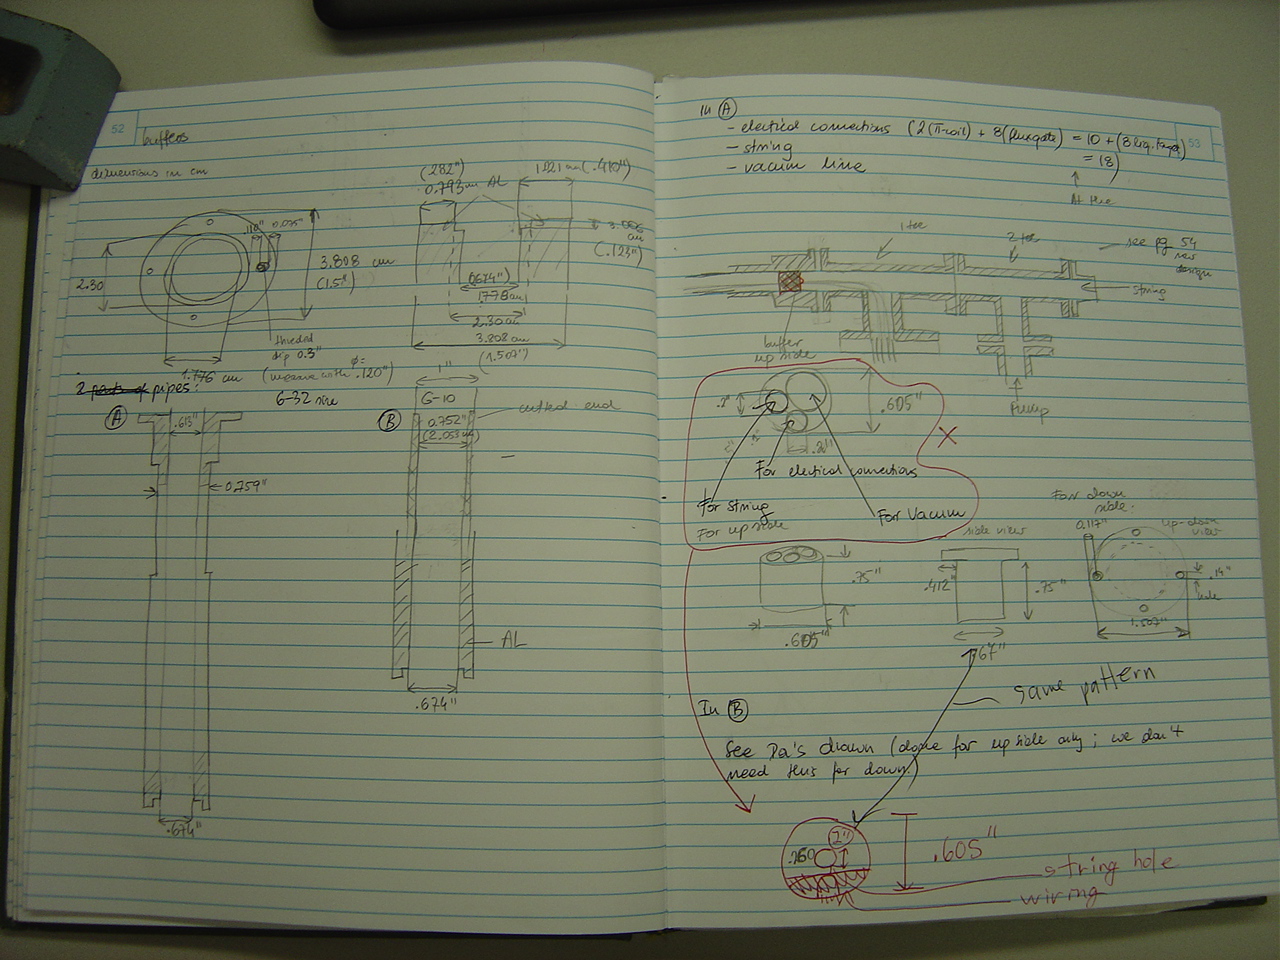 52
buffers
dimentions in cm
(.282")
0.793 cm
AL
1.021 cm (.410")
.110"
0.075"
3.808 cm
(1.5")
2.30
(.123")
(.674")
1.778 cm
2.30 cm
3.808 cm
(1.507")
threded
dip 0.3"
1.776 cm
(measure with .120")
6-32
2 pipes:
A
.613"
0.759"
.674"
B
1"
G-10
cutted end
0.752"
(2.053 cm)
AL
.674"
53
In A
- electical connections (2(π-coil) + 8(fluxgate) = 10 + (8
= 18)
- string
- vacuum line
At the
1 tee
2 tee
see pg. 54
new
design
string
buffer
up side
Pump
.605"
.2"
X
For electical connections
For string
For Vacuum
For up side
side view
For down
side:
up-down
view
0.117"
.75"
.605"
.412"
.75"
.67"
.14"
hole
1.507"
same pattern
In B
See Da's drawn (done for up side only; we don't
need this for down)
.260
.605"
string hole
wiring